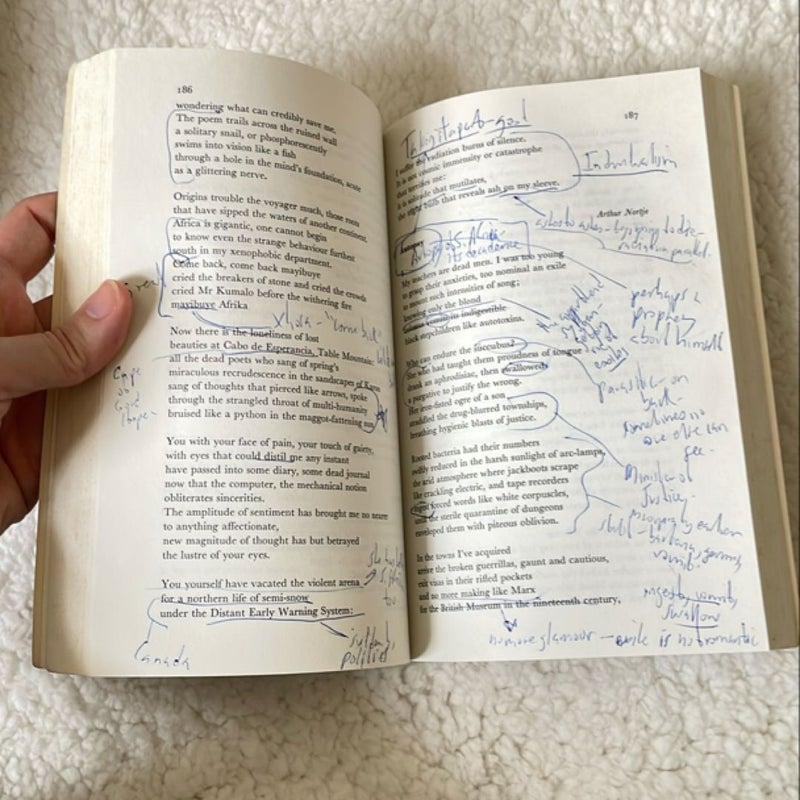 186
wondering what can credibly save me.
The poem trails across the ruined wall
a solitary snail, or phosphorescently
swims into vision like a fish
through a hole in the mind's foundation, acute
as a glittering nerve.
Origins trouble the voyager much, those roots
that have sipped the waters of another continent.
Africa is gigantic, one cannot begin
to know even the strange behaviour furthest
south in my xenophobic department.
Come back, come back mayibuye
cried the breakers of stone and cried the crowds
cried Mr Kumalo before the withering fire
mayibuye Afrika
Xhosa - "come back"
Now there is the loneliness of lost
beauties at Cabo de Esperancia, Table Mountain:
all the dead poets who sang of spring's
miraculous recrudescence in the sandscapes of Karoo
sang of thoughts that pierced like arrows, spoke
through the strangled throat of multi-humanity
bruised like a python in the maggot-fattening sun.
Cape
Good
Hope
You with your face of pain, your touch of gaiety,
with eyes that could distil me any instant
have passed into some diary, some dead journal
now that the computer, the mechanical notion
obliterates sincerities.
The amplitude of sentiment has brought me no nearer
to anything affectionate,
new magnitude of thought has but betrayed
the lustre of your eyes.
she has left
too
You yourself have vacated the violent arena
for a northern life of semi-snow
under the Distant Early Warning System:
Canada
politics
187
Taking it apart - good
I suffer the radiation burns of silence.
It is not cosmic immensity or catastrophe
that terrifies me:
it is solitude that mutilates,
the night bulb that reveals ash on my sleeve.
Individualism
Arthur Nortje
ashes to ashes -
Autopsy
Autopsy of S. Africa
its decadence
My teachers are dead men. I was too young
to grasp their anxieties, too nominal an exile
to mount such intensities of song;
knowing only the blond
colossus vomits its indigestible
black stepchildren like autotoxins.
perhaps a
prophecy
about himself
Who can endure the succubus?
She who had taught them proudness of tongue
drank an aphrodisiac, then swallowed
a purgative to justify the wrong.
Her iron-fisted ogre of a son
straddled the drug-blurred townships,
breathing hygienic blasts of justice.
parasitic - on
back -
no one else can
see -
Minister of
Justice -
Rooted bacteria had their numbers
swiftly reduced in the harsh sunlight of arc-lamps,
the arid atmosphere where jackboots scrape
like crackling electric, and tape recorders
ingest forced words like white corpuscles,
until the sterile quarantine of dungeons
enveloped them with piteous oblivion.
ingest, vomit,
swallow
In the towns I've acquired
arrive the broken guerrillas, gaunt and cautious,
exit visas in their rifled pockets
and no more making like Marx
for the British Museum in the nineteenth century,
no more glamour - exile is not romantic